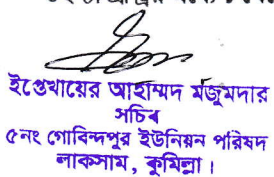 ইপ্তেখায়ের আহাম্মদ মজুমদার
সচিব
৫নং গোবিন্দপুর ইউনিয়ন পরিষদ
লাকসাম, কুমিল্লা।